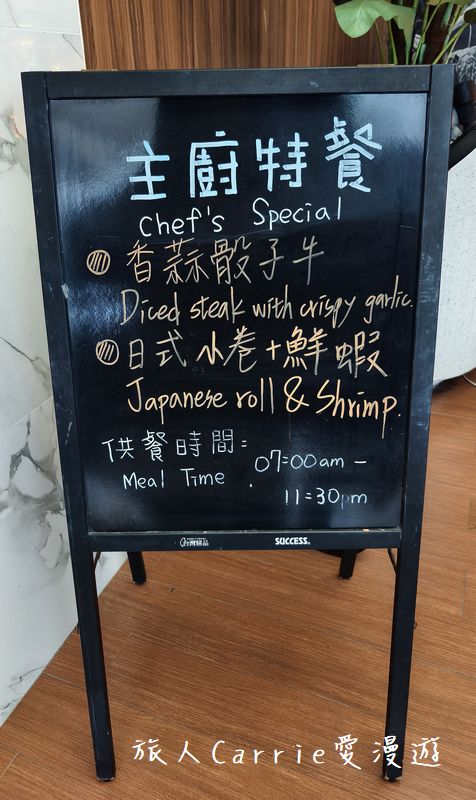 主廚特餐
Chef's Special
香蒜骰子牛
Diced steak with crispy garlic.
日式小卷+鮮蝦
Japanese roll & Shrimp.
供餐時間:
07:00am -
Meal Time
11:30pm
台灣精品
SUCCESS®
旅人Carrie愛漫遊